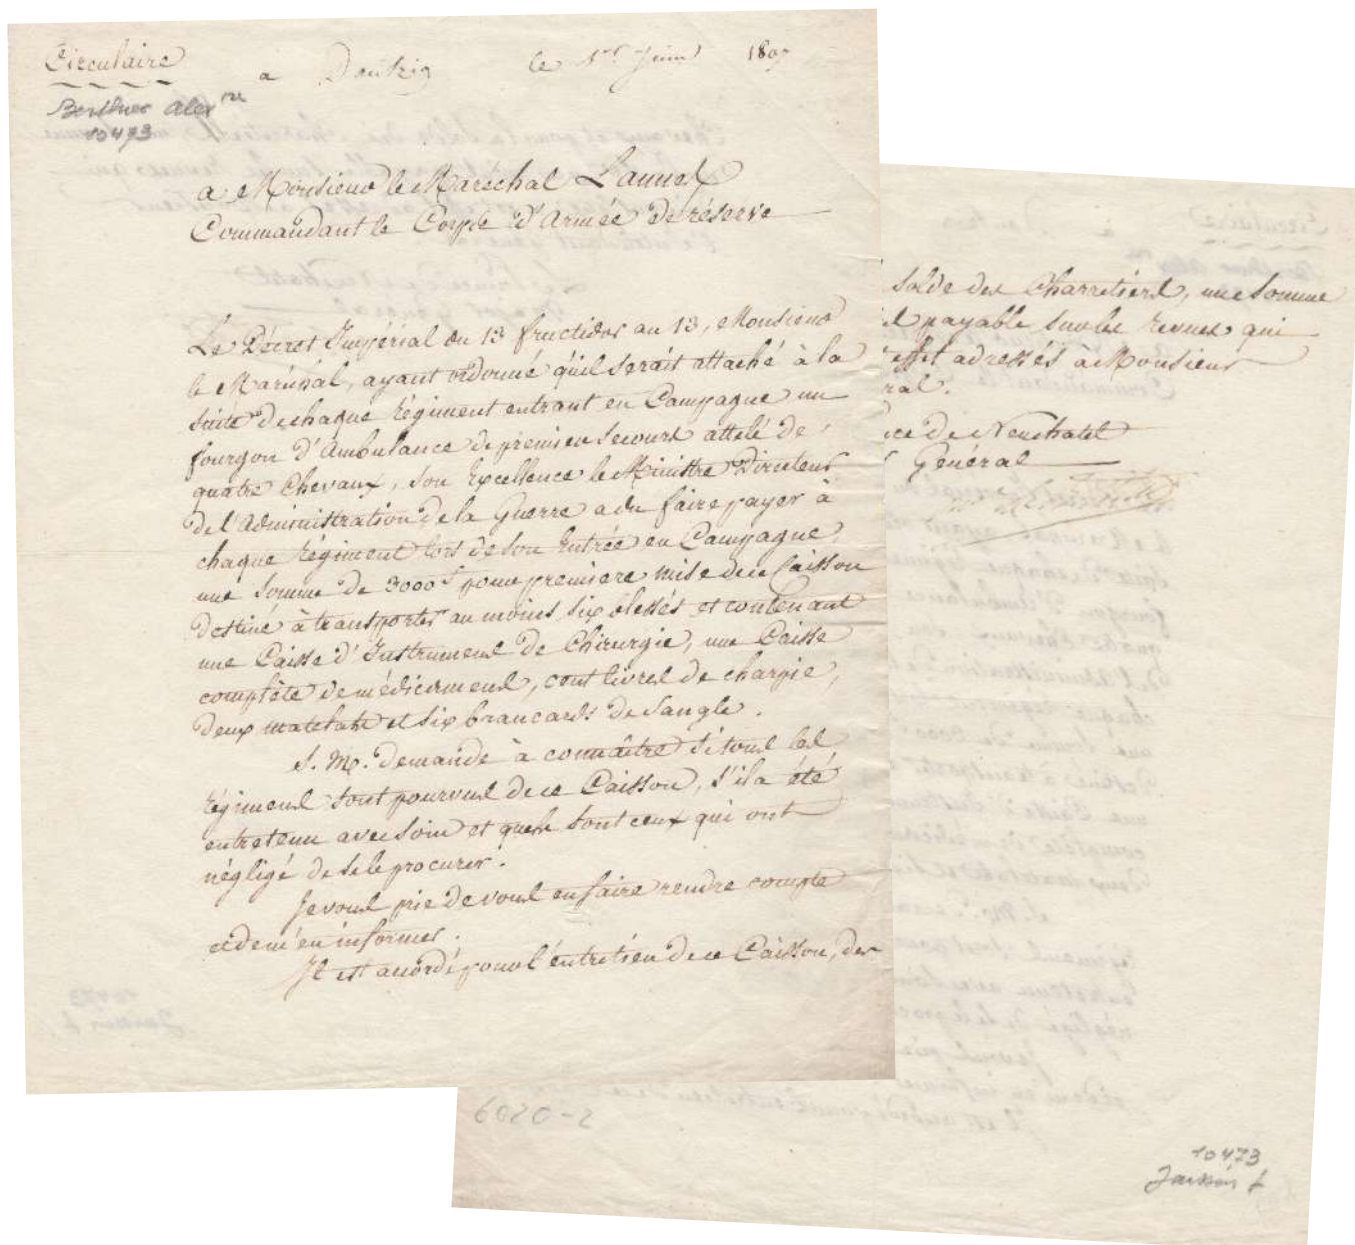 Circulaire
a Dantzig le 1er Juin 1807
Berthier Alexre
10473
a Monsieur le Maréchal Lannes
Commandant le Corps d'Armée de réserve
Le Décret Impérial du 13 fructidor an 13, Monsieur
le Maréchal, ayant ordonné qu'il serait attaché à la
suite de chaque régiment entrant en Campagne un
fourgon d'Ambulance de premier secours attelé de
quatre Chevaux, Son Excellence le Ministre Directeur
de l'Administration de la Guerre a du faire payer à
chaque régiment lors de son entrée en Campagne,
une somme de 3000f pour premiere mise de ce Caisson
destiné à transporter au moins six blessés et contenant
une Caisse d'Instrumens de Chirurgie, une Caisse
complète de médicamens, cent livres de charpie,
deux matelats et six brancards de sangle.
S. M. demande à connaître si tous les
régimens sont pourvus de ce Caisson, s'il a été
entretenu avec soin et quels sont ceux qui ont
négligé de se le procurer.
Je vous prie de vous en faire rendre compte
et de m'en informer.
Il est accordé pour l'entretien de ce Caisson, des
solde des Charretiers, une somme
payable sur les revues qui
effet adressés à Monsieur
ral.
ce de Neuchatel
Général
6020-2
10473